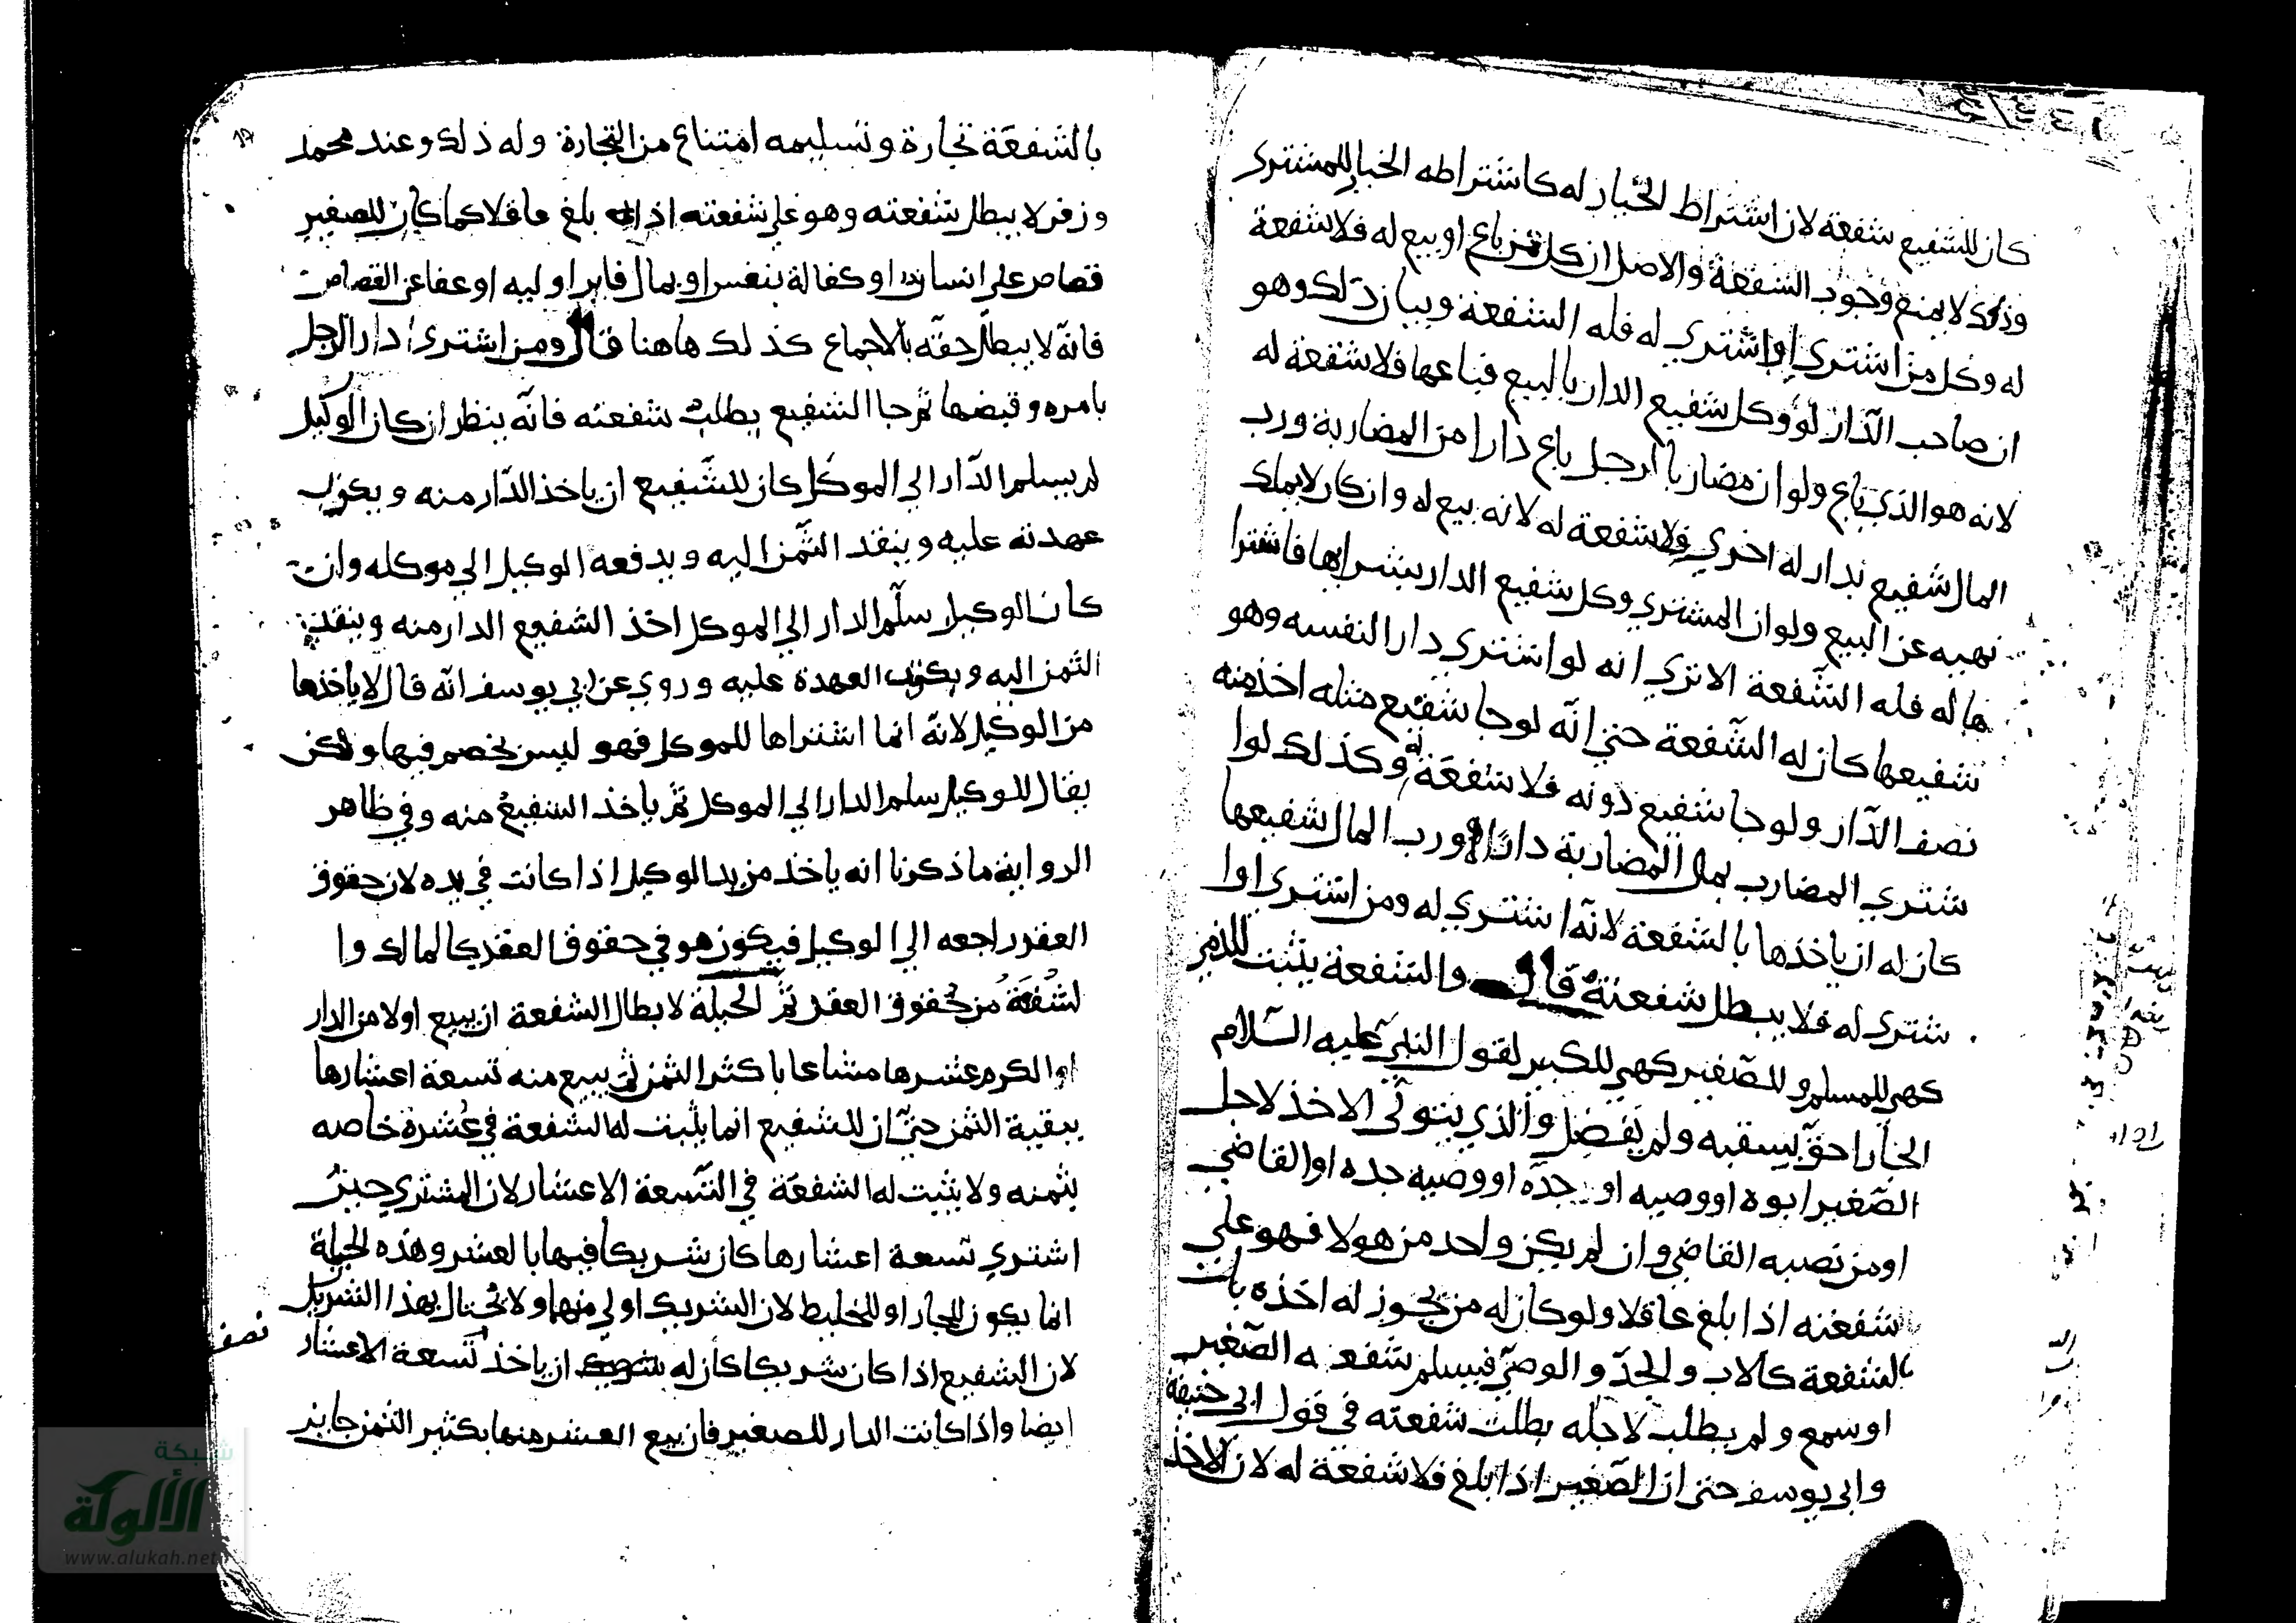 كان للشفيع شفعة لان اشتراط الخيار له كاشتراطه الخيار للمشتري
وذلك لا يمنع وجوب الشفعة والاصل ان كل من باع او بيع له فلا شفعة
له وكل من اشتري او اشتري له فله الشفعة وبيان ذلك وهو
ان صاحب الدار لو وكل شفيع الدار بالبيع فباعها فلا شفعة له
لانه هو الذي باع ولو ان مضاربا لرجل باع دارا من المضاربة ورب
المال شفيع بدار له اخري فلا شفعة له لانه بيع له وان كان لا يملك
نهيه عن البيع ولو ان المشتري وكل شفيع الدار بشرايها فاشترا
ها له فله الشفعة الا تري انه لو اشتري دارا لنفسه وهو
شفيعها كان له الشفعة حتي انه لو جا شفيع مثله اخذ منه
نصف الدار ولو جا شفيع دونه فلا شفعة له وكذلك لو ا
شتري المضارب بمال المضاربة دارا ورب المال شفيعها
كان له ان ياخذها بالشفعة لانه اشتري له ومن اشتري او ا
شتري له فلا يبطل شفعته قال والشفعة يثبت للذمي
كهي للمسلم و للصغير كهي للكبير لقول النبي عليه السلام
الجار احق بسقبه ولم يفصل والذي يتولي الاخذ لاجل
الصغير ابوه او وصيه او جده او وصيه جده او القاضي
او من نصبه القاضي وان لم يكن واحد من هولا فهو علي
شفعته اذا بلغ عاقلا ولو كان له من يجوز له اخذه بات
بالشفعة كالاب والجد والوصي فيسلم شفعة الصغير
او سمع ولم يطلب لاجله بطلت شفعته في قول ابي حنيفة
وابي يوسف حتي ان الصغير اذا بلغ فلا شفعة له لان الاخذ
بالشفعة تجارة وتسليمه امتناع من التجارة وله ذلك وعند محمد
وزفر لا يبطل شفعته وهو علي شفعته اذا بلغ عاقلا كما كان للصغير
قصاص علي انسان او كفالة بنفس او بمال فابرا وليه او عفا عن القصاص
فانه لا يبطل حقه بالاجماع كذلك هاهنا قال ومن اشتري دارا لرجل
بامره وقبضها ثم جا الشفيع يطلب شفعته فانه ينظر ان كان الوكيل
لم يسلم الدار الي الموكل كان للشفيع ان ياخذ الدار منه ويكون
عهدته عليه وينقد الثمن اليه ويدفعه الوكيل الي موكله وان
كان الوكيل سلم الدار الي الموكل اخذ الشفيع الدار منه وينقد
الثمن اليه ويكون العهدة عليه وروي عن ابي يوسف انه قال لا ياخذها
من الوكيل لانه انما اشتراها للموكل فهو ليس بخصم فيها ولكن
يقال للوكيل سلم الدار الي الموكل ثم ياخذ الشفيع منه وفي ظاهر
الرواية ما ذكرنا انه ياخذ من يد الوكيل اذا كانت في يده لان حقوق
العقد راجعه الي الوكيل فيكون هو في حقوق العقد كالمالك وا
لشفعة من حقوق العقد ثم الحيلة لابطال الشفعة ان يبيع اولا من الدار
او الكرم عشرها مشاعا باكثر الثمن ثم يبيع منه تسعة اعشارها
ببقية الثمن حتي ان للشفيع انما يثبت له الشفعة في عشره خاصه
بثمنه ولا يثبت له الشفعة في التسعة الاعشار لان المشتري حين
اشتري تسعة اعشارها كان شريكا فيها بالعشر وهذه الحيلة
انما يكون للجار او للخليط لان الشريك اولي منهما ولا يحتال بهذا الشريك
لان الشفيع اذا كان شريكا كان له ان ياخذ تسعة الاعشار
نصف
ايضا واذا كانت الدار للصغير فان بيع العشر منها بكثير الثمن جايز
شبكة
الألوكة
www.alukah.net